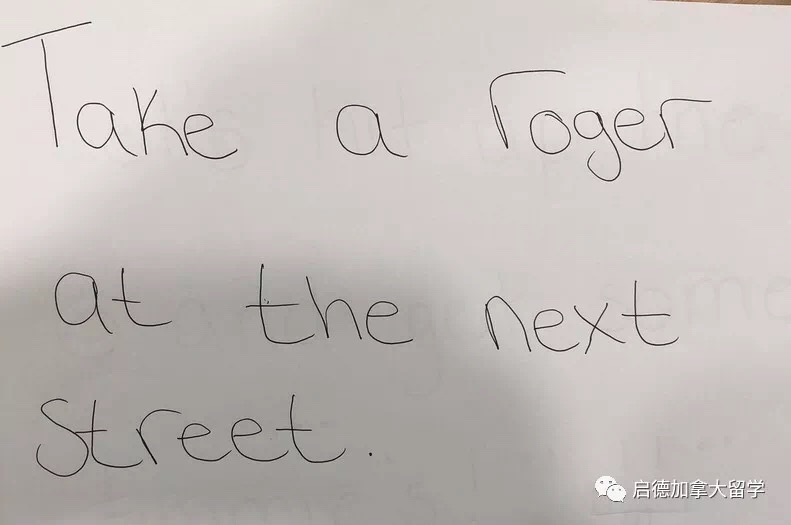 Take a roger
at the next
street.
启德加拿大留学